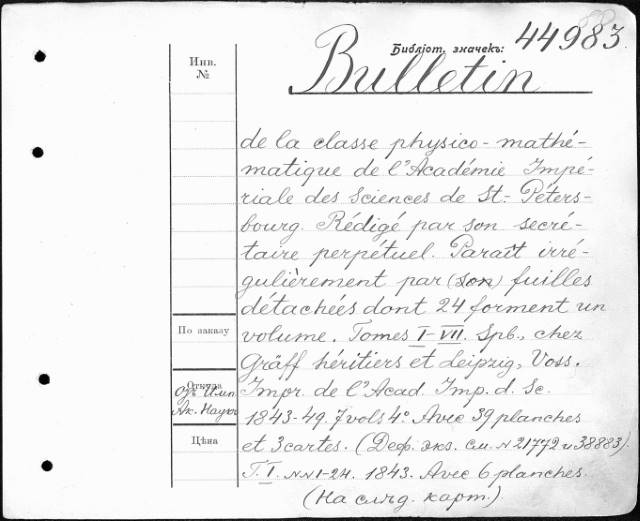 Библіот. значекъ: 44983.
Инв.
№
Bulletin
de la classe physico-mathé-
matique de l'Académie Impé-
riale des Sciences de St.-Péters-
bourg. Rédigé par son secré-
taire perpétuel. Paraît irré-
gulièrement par (son) fuilles
détachées dont 24 forment un
По заказу
volume. Tomes I-VII. Spb., chez
Gräff héritiers et Leipzig, Voss.
Откуда
Отъ Имп.
Ак. Наукъ
Impr. de l'Acad. Imp. d. Sc.
1843-49. 7 vols 4°. Avec 39 planches
Цѣна
et 3 cartes. (Деф. экз. см. N 21772 и 38883).
T. I. NN 1-24. 1843. Avec 6 planches.
(На слѣд. карт.).